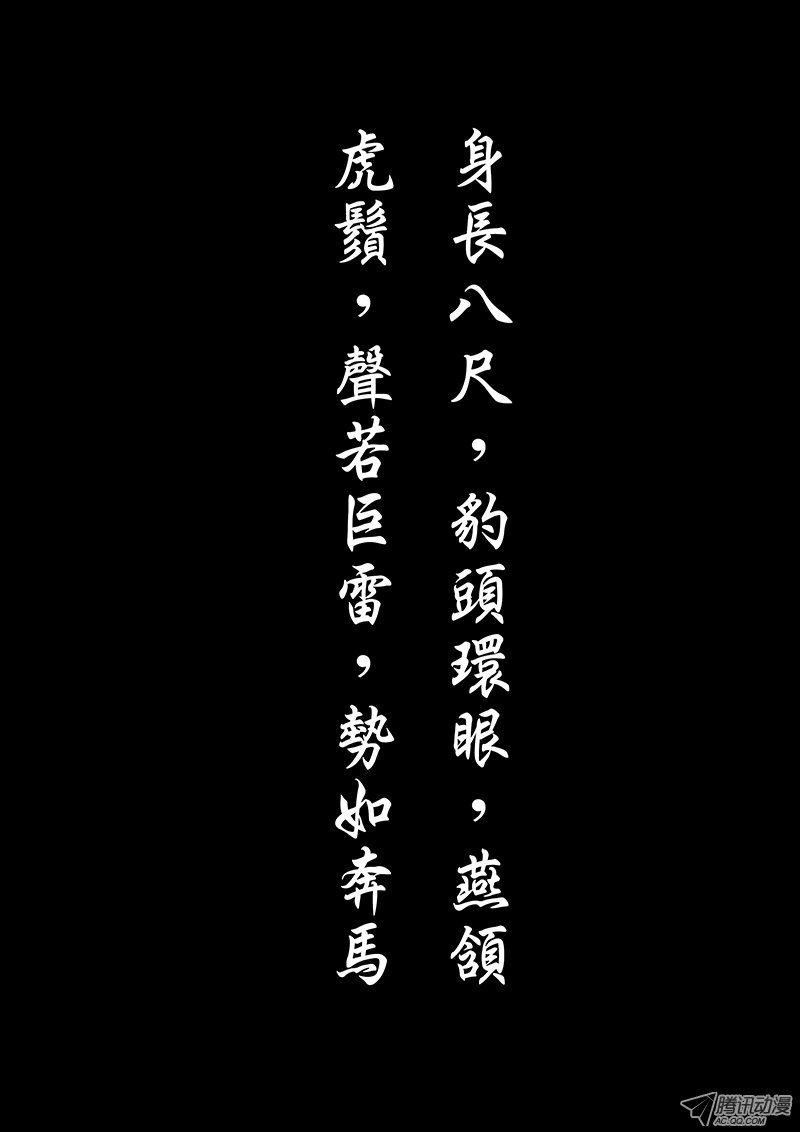 身長八尺，豹頭環眼，燕頷
虎鬚，聲若巨雷，勢如奔馬
腾讯动漫
AC.QQ.COM